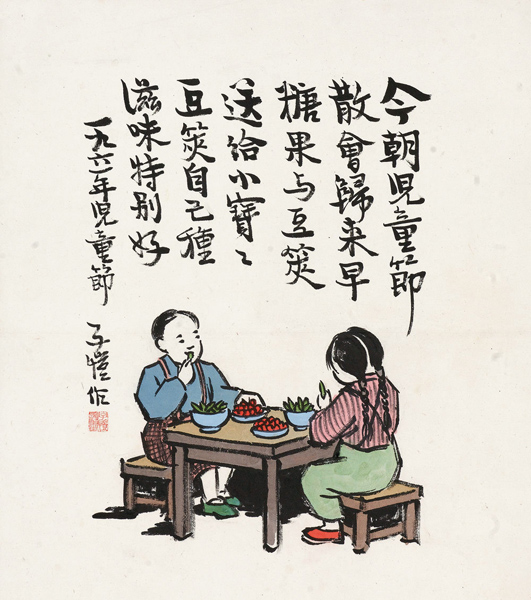 今朝児童節
散會歸来早
糖果与豆莢
送給小寶〻
豆莢自己種
滋味特别好
一九六一年児童節 子愷作